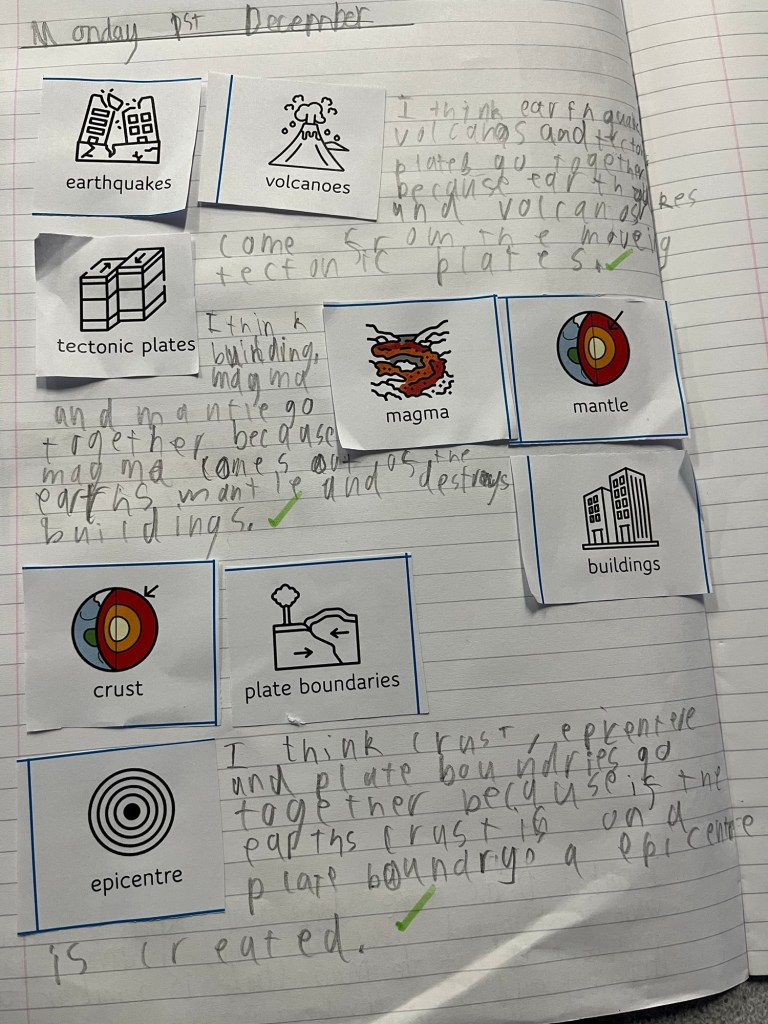 Monday 1st December
earthquakes
volcanoes
I think earthquakes
volcanos and tecton
plates go together
because earthquakes
and volcanos
come from the moveing
tectonic plates.
tectonic plates
I think
buinding,
magma
and mantle go
together because
magma comes out of the
earths mantle and destroys
buildings.
magma
mantle
buildings
crust
plate boundaries
epicentre
I think crust, epicentre
and plate boundries go
together because if the
earths crust is on a
plate boundry a epicentre
is created.